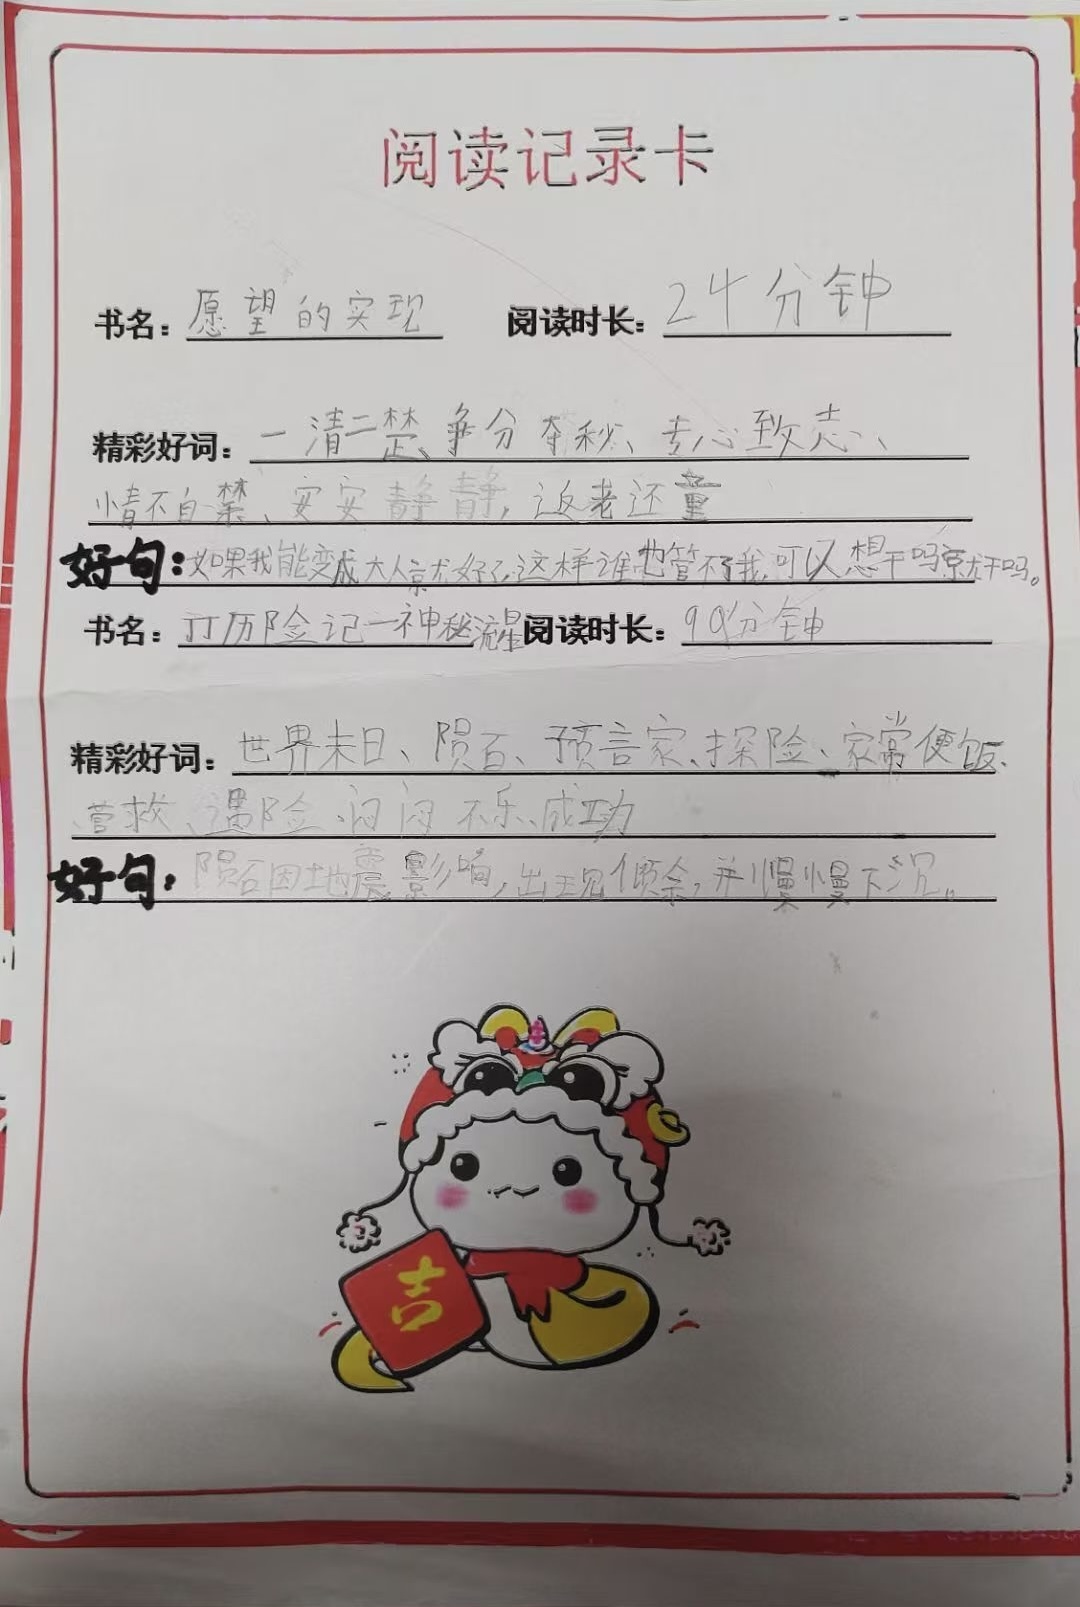 阅读记录卡
书名：愿望的实现 阅读时长：24分钟
精彩好词：一清二楚、争分夺秒、专心致志、
情不自禁、安安静静，返老还童
好句：如果我能变成大人就好了，这样谁也管不了我，可以想干吗就干吗。
书名：丁丁历险记一神秘流星 阅读时长：90分钟
精彩好词：世界末日、陨石、预言家、探险、家常便饭、
营救、遇险、闷闷不乐、成功
好句：陨石因地震影响，出现倾余，并慢慢下沉。
吉